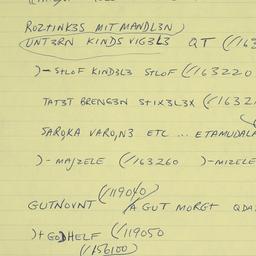 ROZTINK3S MIT MANDL3N
UNT3RN KINDS VIG3L3 QT (/163
)-STLOF KIND3L3 STLOF (/163220
TAT3T BRENG3N STIX3L3X (/1632
SAROKA VARON3 ETC ... ETAMUDALA
)-MAJZELE (/163260 )-MIZELE
(/119040)
GUTNOVNT /A GUT MORGT QDA
)+GODHELF (/119050
(/156100)